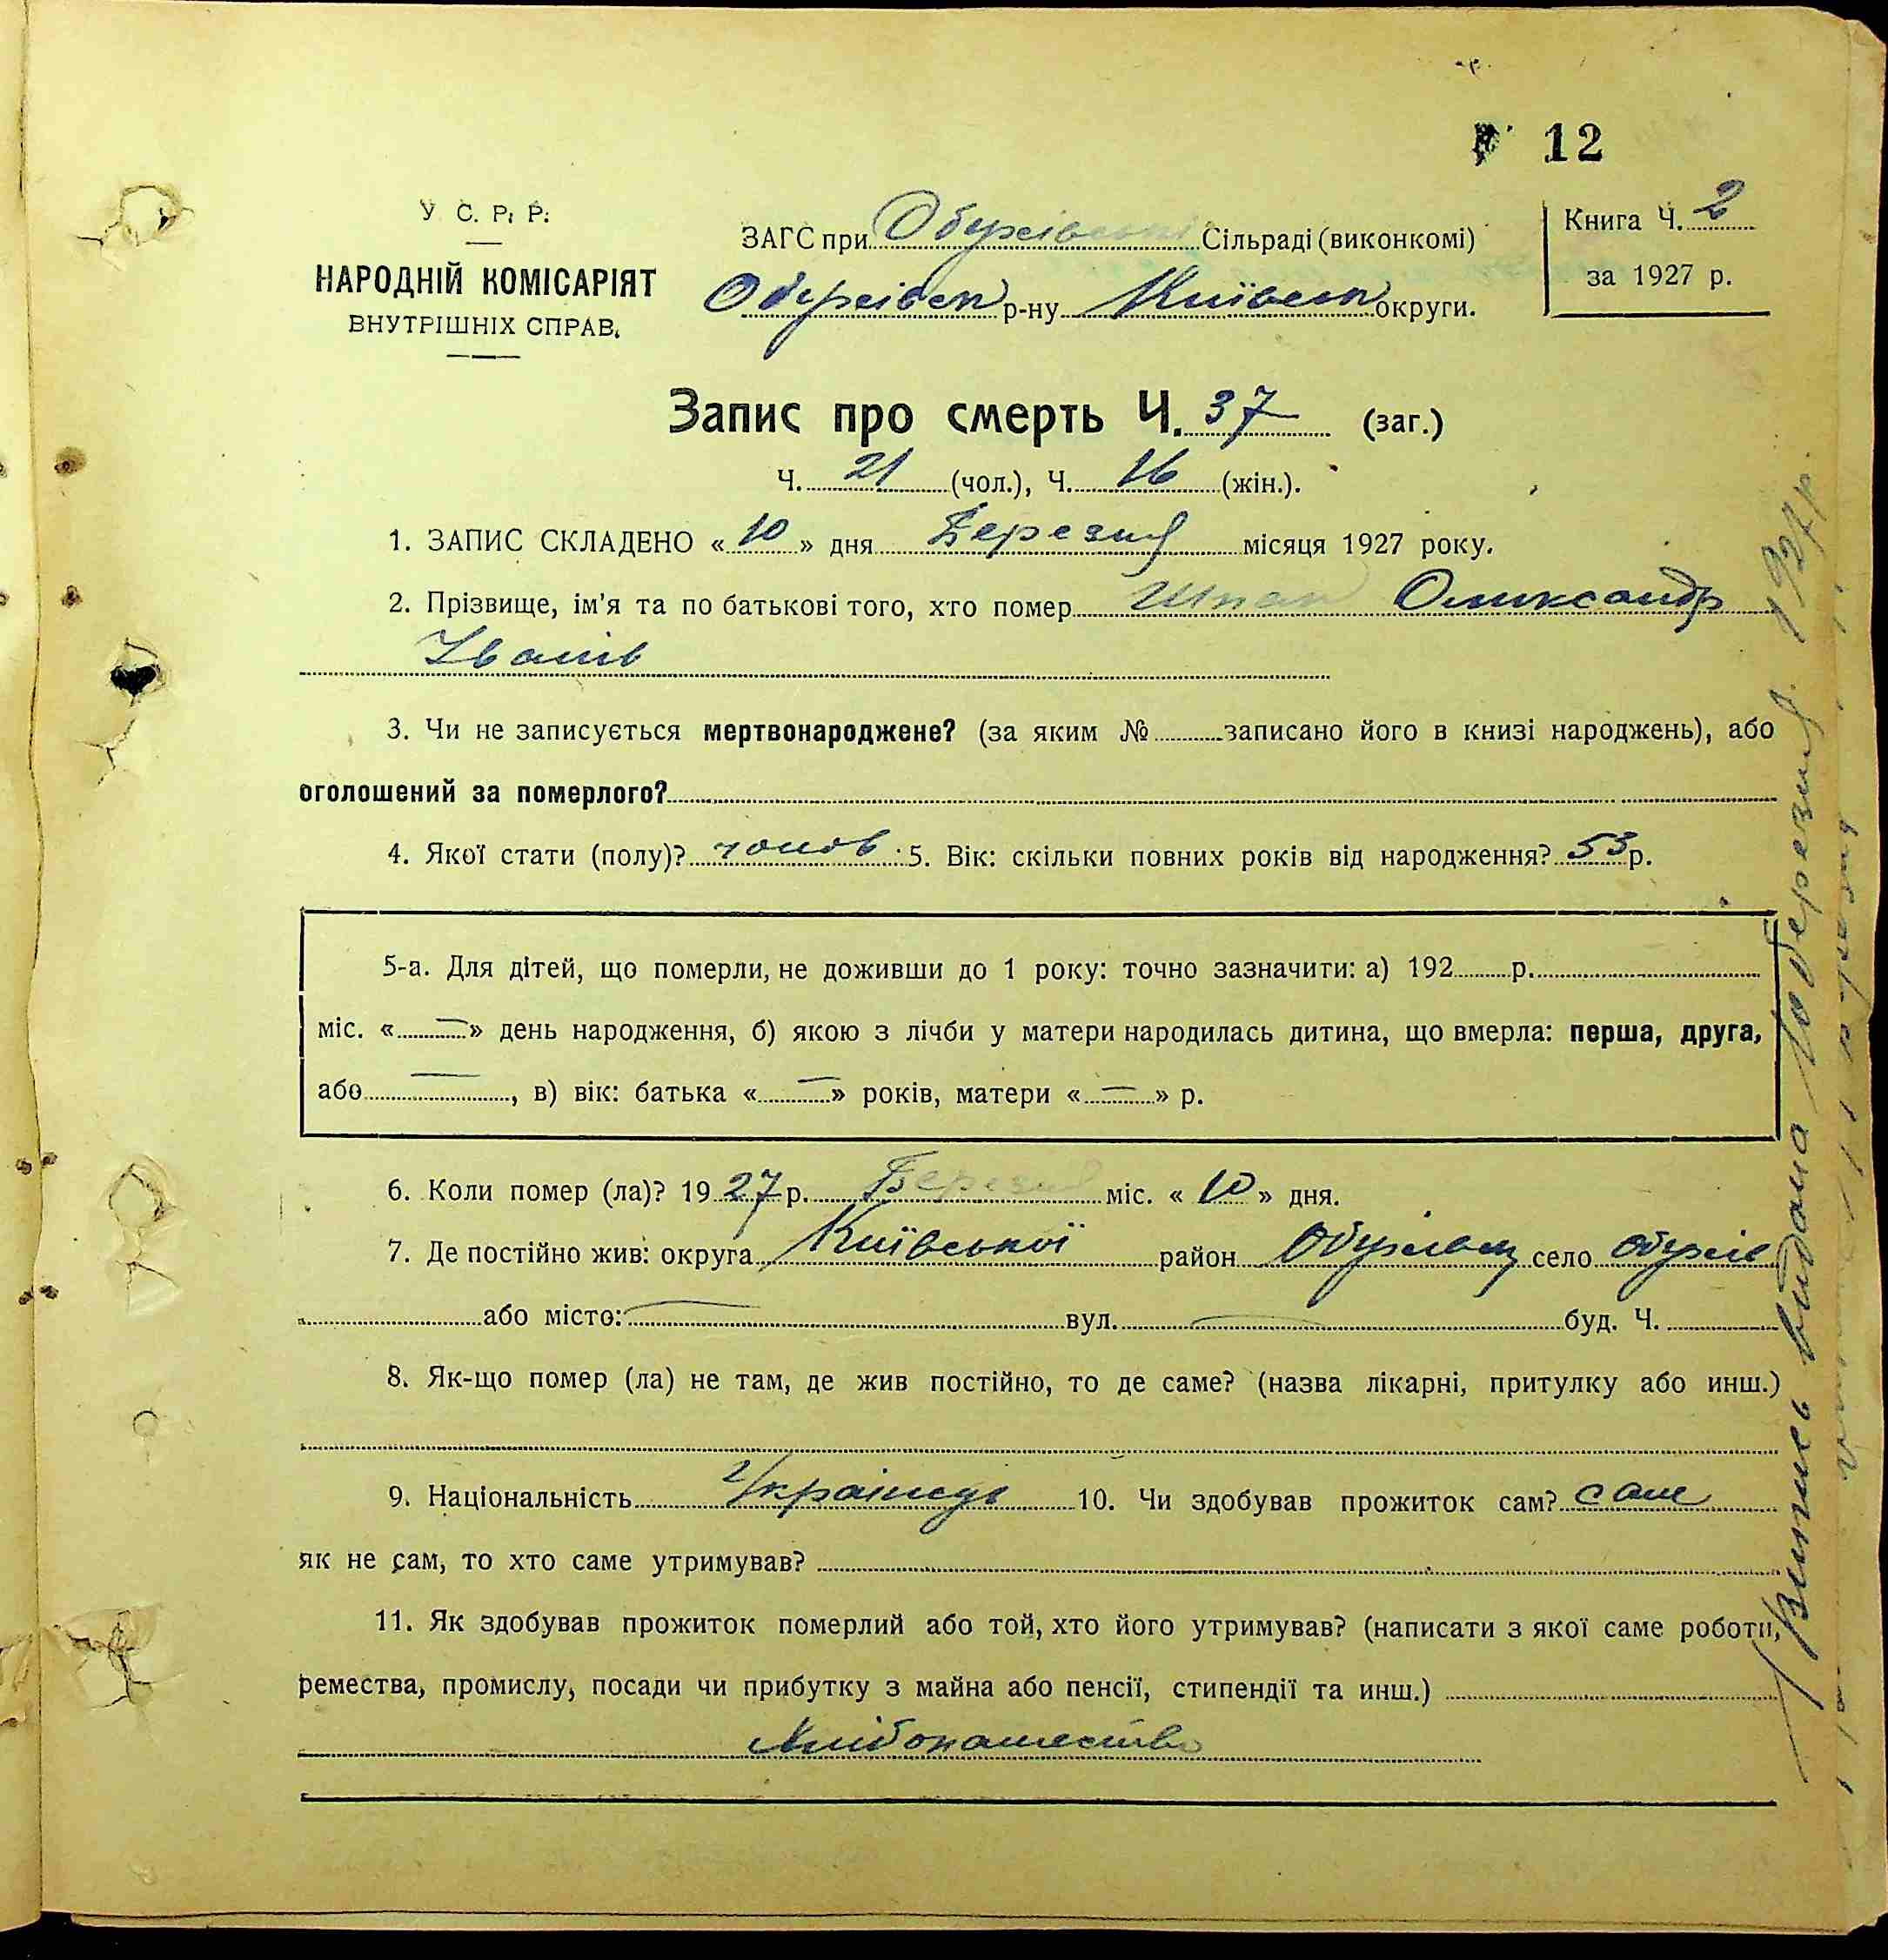 12
У С. Р. Р.
НАРОДНІЙ КОМІСАРІЯТ
ВНУТРІШНІХ СПРАВ.
ЗАГС при Обухівській Сільраді (виконкомі)
Обухівськ р-ну Київськ округи.
Книга Ч. 2
за 1927 р.
Запис про смерть Ч. 37 (заг.)
Ч. 21 (чол.), Ч. 16 (жін.).
1. ЗАПИС СКЛАДЕНО « 10 » дня Березня місяця 1927 року.
2. Прізвище, ім'я та по батькові того, хто помер Шпак Олександр
Іванів
3. Чи не записується мертвонароджене? (за яким № записано його в книзі народжень), або
оголошений за померлого?
4. Якої стати (полу)? чолов 5. Вік: скільки повних років від народження? 53 р.
5-а. Для дітей, що померли, не доживши до 1 року: точно зазначити: а) 192 р.
міс. « — » день народження, б) якою з лічби у матери народилась дитина, що вмерла: перша, друга,
або — , в) вік: батька « — » років, матери « — » р.
6. Коли помер (ла)? 19 27 р. Березня міс. « 10 » дня.
7. Де постійно жив: округа Київської район Обухівськ село Обухів
або місто: — вул. — буд. Ч.
8. Як-що помер (ла) не там, де жив постійно, то де саме? (назва лікарні, притулку або инш.)
9. Національність Українець 10. Чи здобував прожиток сам? сам
як не сам, то хто саме утримував?
11. Як здобував прожиток померлий або той, хто його утримував? (написати з якої саме роботи,
ремества, промислу, посади чи прибутку з майна або пенсії, стипендії та инш.)
Хлібопашество
Випись видана 10 березня 1927 р.